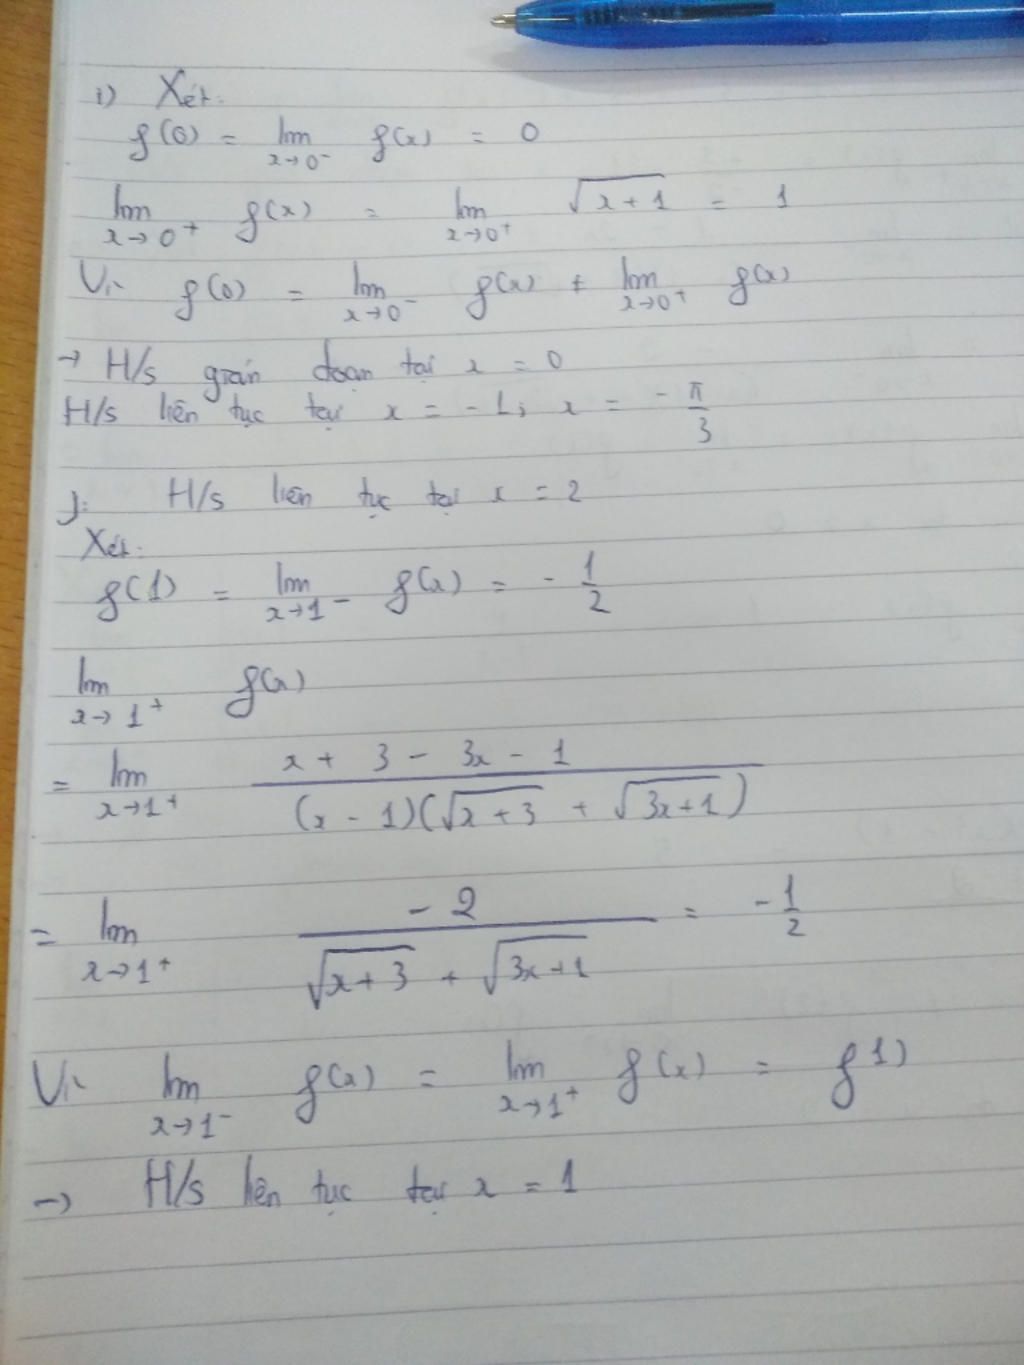 i) Xét:
f(0) = lim x→0⁻ f(x) = 0
lim x→0⁺ f(x) = lim x→0⁺ √(x+1) = 1
Vì f(0) = lim x→0⁻ f(x) ≠ lim x→0⁺ f(x)
→ H/s gián đoạn tại x = 0
H/s liên tục tại x = -1; x = -π/3
j: H/s liên tục tại x = 2
Xét:
f(1) = lim x→1⁻ f(x) = -1/2
lim x→1⁺ f(x)
= lim x→1⁺ (x + 3 - 3x - 1)/((x - 1)(√(x+3) + √(3x+1)))
= lim x→1⁺ -2/(√(x+3) + √(3x+1)) = -1/2
Vì lim x→1⁻ f(x) = lim x→1⁺ f(x) = f1)
→ H/s liên tục tại x = 1